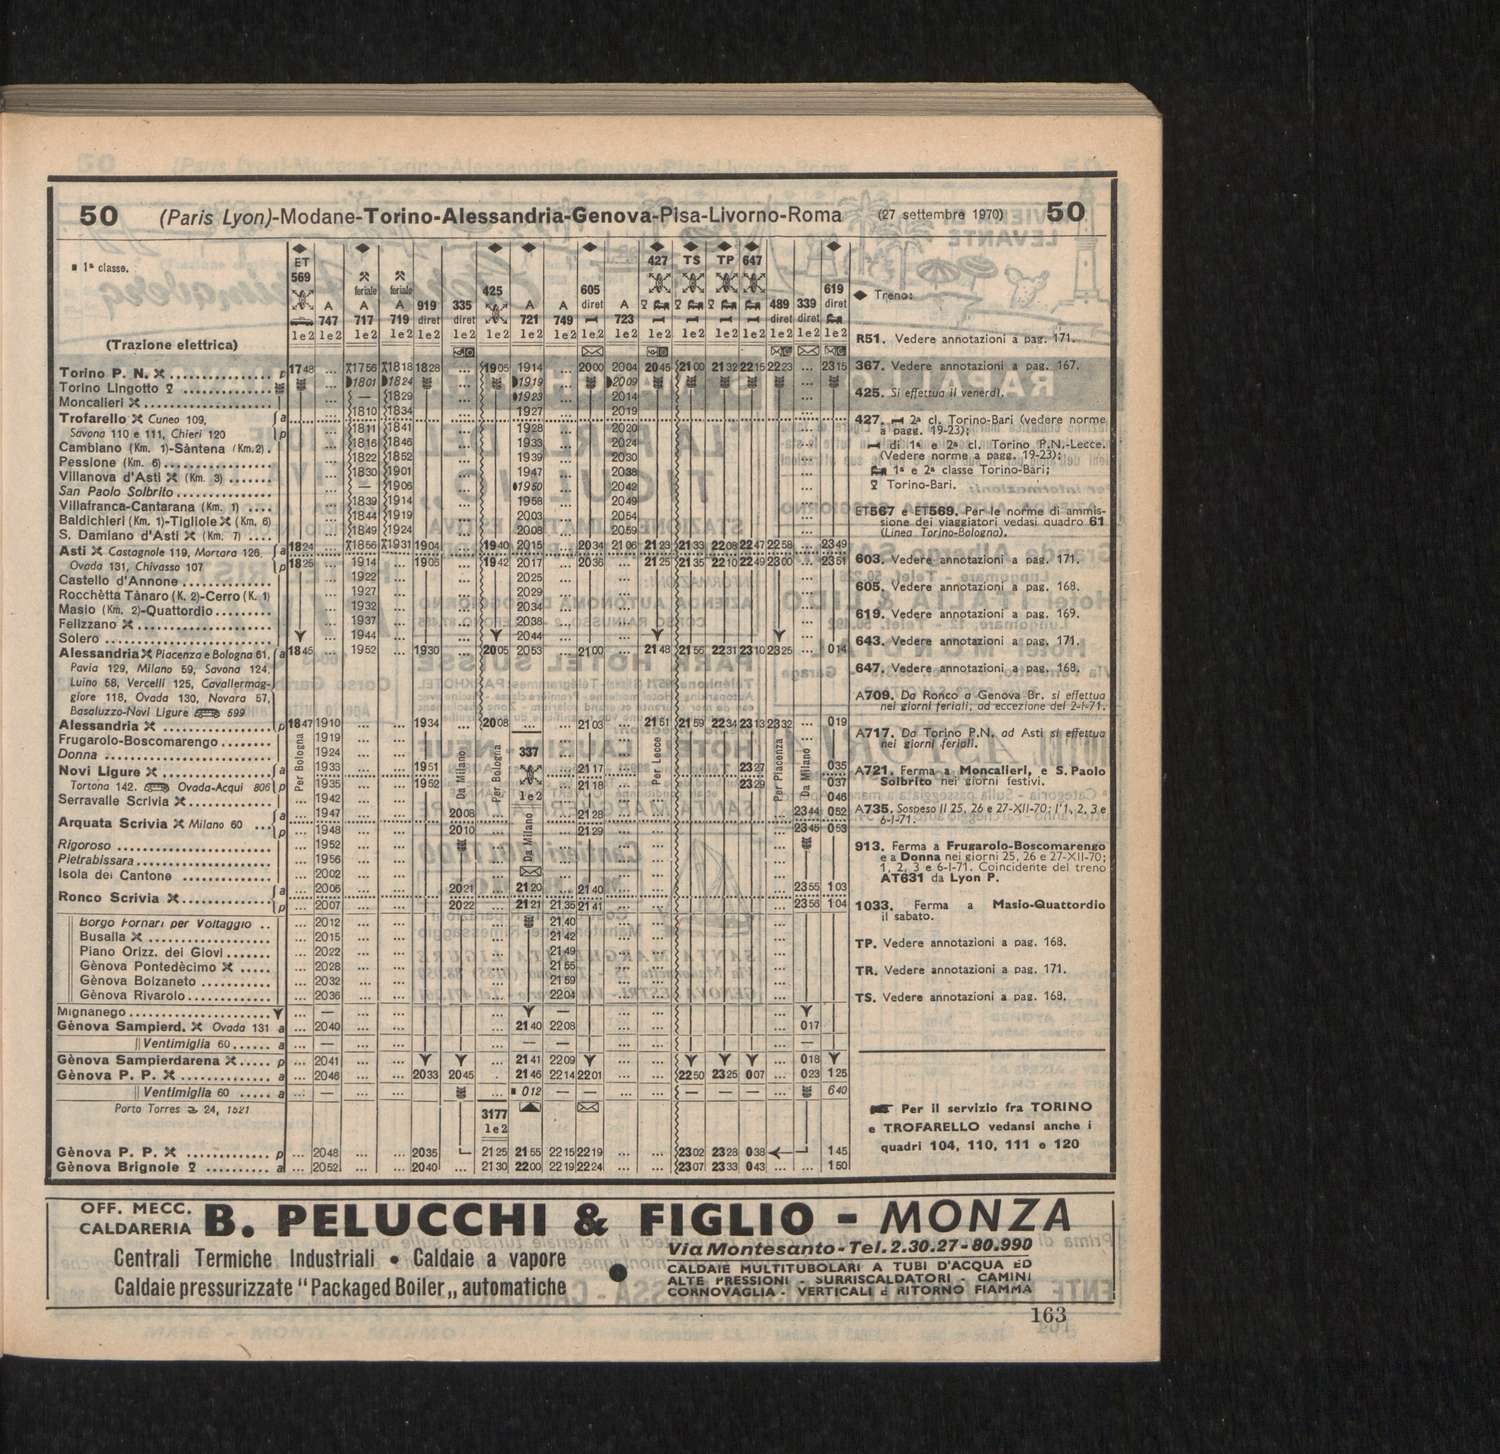 50 (Paris Lyon)-Modane-Torino-Alessandria-Genova-Pisa-Livorno-Roma (27 settembre 1970) 50
▪ 1ª classe.
ET 569 1e2
A 747 1e2
feriale A 717 1e2
feriale A 719 1e2
919 diret 1e2
335 diret 1e2
425 1e2
A 721 1e2
A 749 1e2
605 diret 1e2
A 723 1e2
427 1e2
TS 1e2
TP 1e2
647 1e2
489 diret 1e2
339 diret 1e2
619 diret 1e2
(Trazione elettrica)
Torino P. N. p 1748 ... 1756 1818 1828 ... 1905 1914 ... 2000 2004 2045 2100 2132 2215 2223 ... 2315
Torino Lingotto 1801 1824 1919 2009
Moncalieri — 1829 1923 2014
Trofarello Cuneo 109, a 1810 1834 1927 2019
Savona 110 e 111, Chieri 120 p 1811 1841 1928 2020
Cambiano (Km. 1)-Sàntena (Km.2) . 1816 1846 1933 2024
Pessione (Km. 6) 1822 1852 1939 2030
Villanova d'Asti (Km. 3) 1830 1901 1947 2038
San Paolo Solbrito — 1906 1950 2042
Villafranca-Cantarana (Km. 1) 1839 1914 1958 2049
Baldichieri (Km. 1)-Tigliole (Km. 6) 1844 1919 2003 2054
S. Damiano d'Asti (Km. 7) 1849 1924 2008 2059
Asti Castagnole 119, Mortara 126, a 1824 ... 1856 1931 1904 ... 1940 2015 ... 2034 2106 2123 2133 2208 2247 2258 ... 2349
Ovada 131, Chivasso 107 p 1825 ... 1914 ... 1905 ... 1942 2017 ... 2036 ... 2125 2135 2210 2249 2300 ... 2351
Castello d'Annone 1922 2025
Rocchètta Tànaro (K. 2)-Cerro (K. 1) 1927 2029
Masio (Km. 2)-Quattordio 1932 2034
Felizzano 1937 2038
Solero 1944 2044
Alessandria Piacenza e Bologna 61, a 1845 ... 1952 ... 1930 ... 2005 2053 ... 2100 ... 2148 2156 2231 2310 2325 ... 014
Pavia 129, Milano 59, Savona 124,
Luino 58, Vercelli 125, Cavallermag-
giore 118, Ovada 130, Novara 57,
Basaluzzo-Novi Ligure 599
Alessandria p 1847 1910 ... ... 1934 ... 2008 ... 2103 ... 2151 2159 2234 2313 2332 ... 019
Frugarolo-Boscomarengo 1919
Donna 1924
Novi Ligure a 1933 1951 2117 2327 035
Tortona 142. Ovada-Acqui 806 p 1935 1952 2118 2329 037
Serravalle Scrivia 1942 046
Arquata Scrivia Milano 60 a 1947 2008 2128 2344 052
p 1948 2010 2129 2345 053
Rigoroso 1952
Pietrabissara 1956
Isola del Cantone 2002
Ronco Scrivia a 2006 2021 2120 2140 2355 103
p 2007 2022 2121 2135 2141 2356 104
Borgo Fornari per Voltaggio .. 2012 2140
Busalla 2015 2142
Piano Orizz. dei Giovi 2022 2149
Gènova Pontedècimo 2028 2155
Gènova Bolzaneto 2032 2159
Gènova Rivarolo 2036 2204
Mignanego —
Gènova Sampierd. Ovada 131 a 2040 2140 2208 017
Ventimiglia 60 a — — — —
Gènova Sampierdarena p 2041 2141 2209 018
Gènova P. P. a 2046 2033 2045 2146 2214 2201 2250 2325 007 023 125
Ventimiglia 60 a — — ▪ 012 — — 640
Porto Torres 24, 1521
Gènova P. P. p 2048 2035 2125 2155 2215 2219 2302 2328 038 145
Gènova Brignole a 2052 2040 2130 2200 2219 2224 2307 2333 043 150
Per Bologna
Da Milano
Per Bologna
337 1e2
Da Milano
Per Lecce
Per Piacenza
Da Milano
3177 1e2
Treno:
R51. Vedere annotazioni a pag. 171.
367. Vedere annotazioni a pag. 167.
425. Si effettua il venerdì.
427. 2ª cl. Torino-Bari (vedere norme
a pagg. 19-23);
di 1ª e 2ª cl. Torino P.N.-Lecce.
(Vedere norme a pagg. 19-23);
1ª e 2ª classe Torino-Bari;
Torino-Bari.
ET567 e ET569. Per le norme di ammis-
sione dei viaggiatori vedasi quadro 61
(Linea Torino-Bologna).
603. Vedere annotazioni a pag. 171.
605. Vedere annotazioni a pag. 168.
619. Vedere annotazioni a pag. 169.
643. Vedere annotazioni a pag. 171.
647. Vedere annotazioni a pag. 168.
A709. Da Ronco a Genova Br. si effettua
nei giorni feriali, ad eccezione del 2-I-71.
A717. Da Torino P.N. ad Asti si effettua
nei giorni feriali.
A721. Ferma a Moncalieri, e S. Paolo
Solbrito nei giorni festivi.
A735. Sospeso il 25, 26 e 27-XII-70; l'1, 2, 3 e
6-I-71.
913. Ferma a Frugarolo-Boscomarengo
e a Donna nei giorni 25, 26 e 27-XII-70;
1, 2, 3 e 6-I-71. Coincidente del treno
AT631 da Lyon P.
1033. Ferma a Masio-Quattordio
il sabato.
TP. Vedere annotazioni a pag. 168.
TR. Vedere annotazioni a pag. 171.
TS. Vedere annotazioni a pag. 168.
Per il servizio fra TORINO
e TROFARELLO vedansi anche i
quadri 104, 110, 111 e 120
OFF. MECC.
CALDARERIA B. PELUCCHI & FIGLIO - MONZA
Centrali Termiche Industriali • Caldaie a vapore
Caldaie pressurizzate "Packaged Boiler„ automatiche
Via Montesanto - Tel. 2.30.27 - 80.990
CALDAIE MULTITUBOLARI A TUBI D'ACQUA ED
ALTE PRESSIONI - SURRISCALDATORI - CAMINI
CORNOVAGLIA - VERTICALI a RITORNO FIAMMA
163